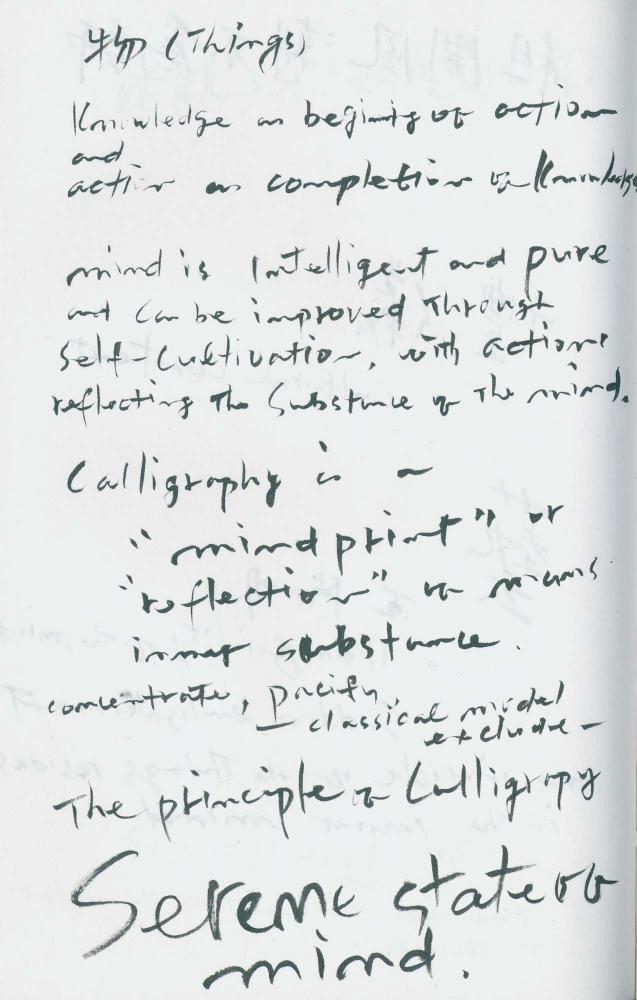 物 (Things)
Knowledge as begining of action
and
action as completion of Knowledge
mind is Intelligent and pure
and can be improved Through
Self-Cultivation, with actions
reflecting The Substance of The mind.
Calligraphy is a
"mind print" or
"reflection" of mans
inner substance.
concentrate, pacify,
classical model
exclude –
The principle of Calligrapy
Serene state of
mind.